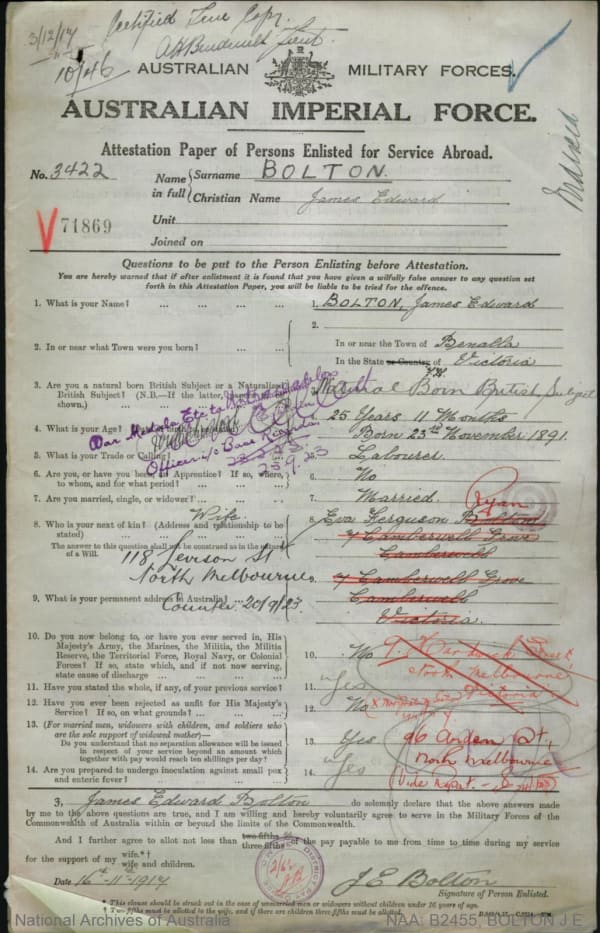 Certified True Copy.
3/12/17
10/46
AUSTRALIAN MILITARY FORCES.
AUSTRALIAN IMPERIAL FORCE.
Attestation Paper of Persons Enlisted for Service Abroad.
No. 3422
Name in full
Surname BOLTON.
Christian Name James Edward
Unit
Joined on
71869
Questions to be put to the Person Enlisting before Attestation.
You are hereby warned that if after enlistment it is found that you have given a wilfully false answer to any question set
forth in this Attestation Paper, you will be liable to be tried for the offence.
1. What is your Name? ... ... ... ... 1. BOLTON, James Edward
2.
2. In or near what Town were you born? ... ... In or near the Town of Benalla
In the State or Country of Victoria
3. Are you a natural born British Subject or a Naturalized
British Subject? (N.B.—If the latter,
shown.)
3. Natural Born British Subject
4. What is your Age?
25 Years 11 Months
Born 23rd November 1891.
5. What is your Trade or Calling?
Labourer.
Officer i/c Base Records
25.9.23
6. Are you, or have you been, an Apprentice? If so, where,
to whom, and for what period?
6. No
7. Are you married, single, or widower? ... 7. Married.
Ryan
8. Who is your next of kin? (Address and relationship to be
stated)
Wife
8. Eva Ferguson Bolton
7 Camberwell Grove
Camberwell
The answer to this question shall not be construed as in the nature
of a Will.
118 Levison St
North Melbourne
9. What is your permanent address in Australia?
Counter 20/9/23
9. 7 Camberwell Grove
Camberwell
Victoria.
10. Do you now belong to, or have you ever served in, His
Majesty's Army, the Marines, the Militia, the Militia
Reserve, the Territorial Force, Royal Navy, or Colonial
Forces? If so, state which, and if not now serving,
state cause of discharge ... ... ...
10. No
North Melbourne
Victoria
11. Have you stated the whole, if any, of your previous service? 11. Yes
12. Have you ever been rejected as unfit for His Majesty's
Service? If so, on what grounds? ... ...
12. No
13. (For married men, widowers with children, and soldiers who
are the sole support of widowed mother)—
Do you understand that no separation allowance will be issued
in respect of your service beyond an amount which
together with pay would reach ten shillings per day?
13. Yes
96 Arden St,
North Melbourne
14. Are you prepared to undergo inoculation against small pox
and enteric fever? ... ... ... ...
14. Yes
I, James Edward Bolton do solemnly declare that the above answers made
by me to the above questions are true, and I am willing and hereby voluntarily agree to serve in the Military Forces of the
Commonwealth of Australia within or beyond the limits of the Commonwealth.
And I further agree to allot not less than two-fifths
three-fifths of the pay payable to me from time to time during my service
for the support of my wife.*†
wife and children.
Date 16th-11th-1917
J E Bolton
Signature of Person Enlisted.
* This clause should be struck out in the case of unmarried men or widowers without children under 16 years of age.
† Two fifths must be allotted to the wife, and if there are children three fifths must be allotted.
National Archives of Australia
NAA: B2455, BOLTON J E